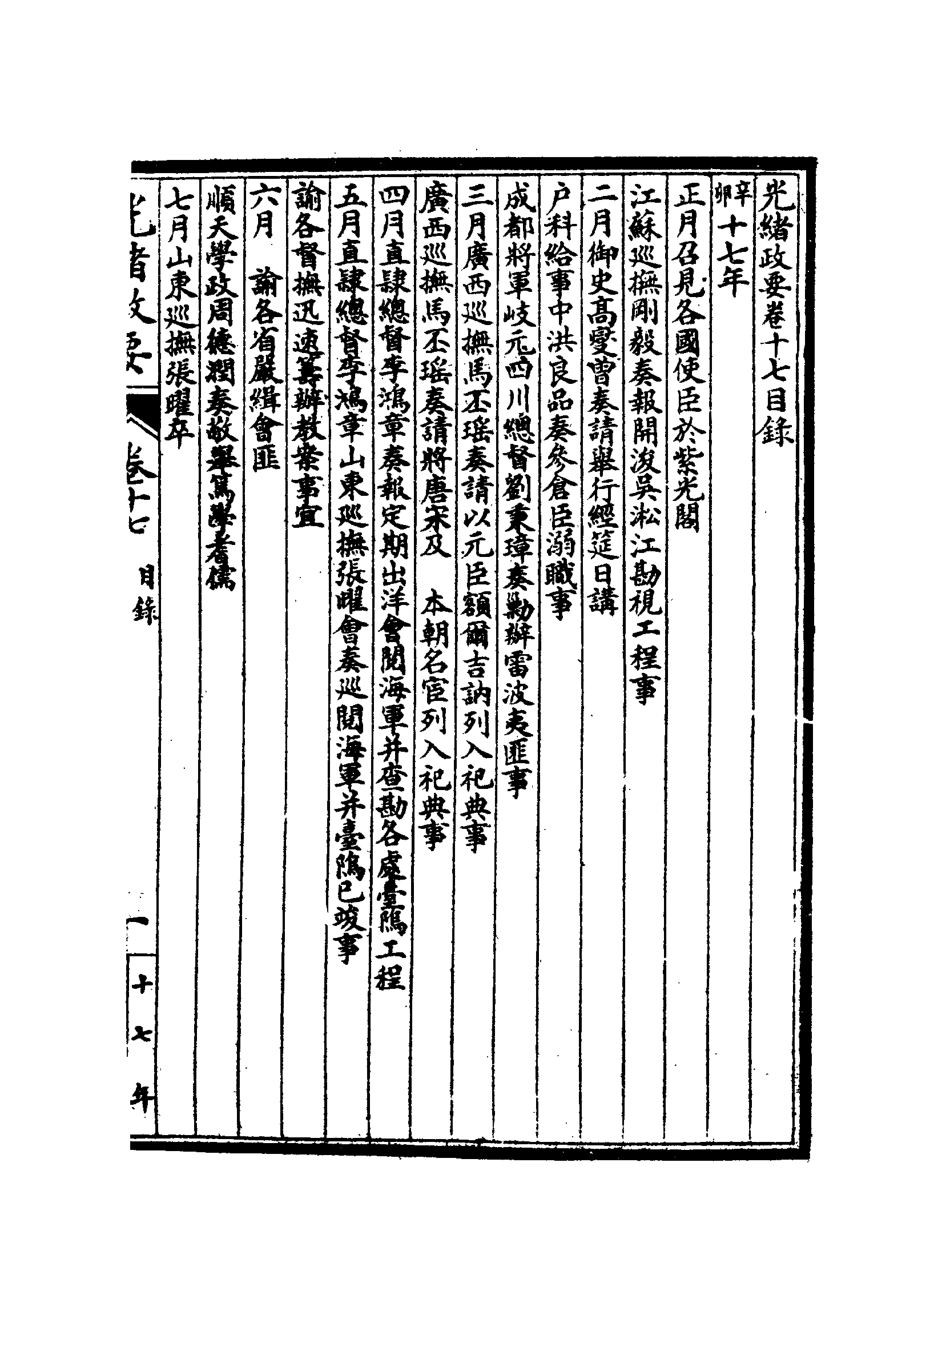 光緒政要卷十七目錄
辛卯十七年
正月召見各國使臣於紫光閣
江蘇巡撫剛毅奏報開浚吳淞江勘視工程事
二月御史高燮曾奏請舉行經筵日講
户科給事中洪良品奏參倉臣溺職事
成都將軍岐元四川總督劉秉璋奏勦辦雷波夷匪事
三月廣西巡撫馬丕瑤奏請以元臣額爾吉訥列入祀典事
廣西巡撫馬丕瑤奏請將唐宋及 本朝名宦列入祀典事
四月直隸總督李鴻章奏報定期出洋會閱海軍并查勘各處臺隝工程
五月直隸總督李鴻章山東巡撫張曜會奏巡閱海軍并臺隝已竣事
諭各督撫迅速籌辦教案事宜
六月 諭各省嚴緝會匪
順天學政周德潤奏敬舉篤學耆儒
七月山東巡撫張曜卒
光緒政要 卷十七 目錄 一 十七年